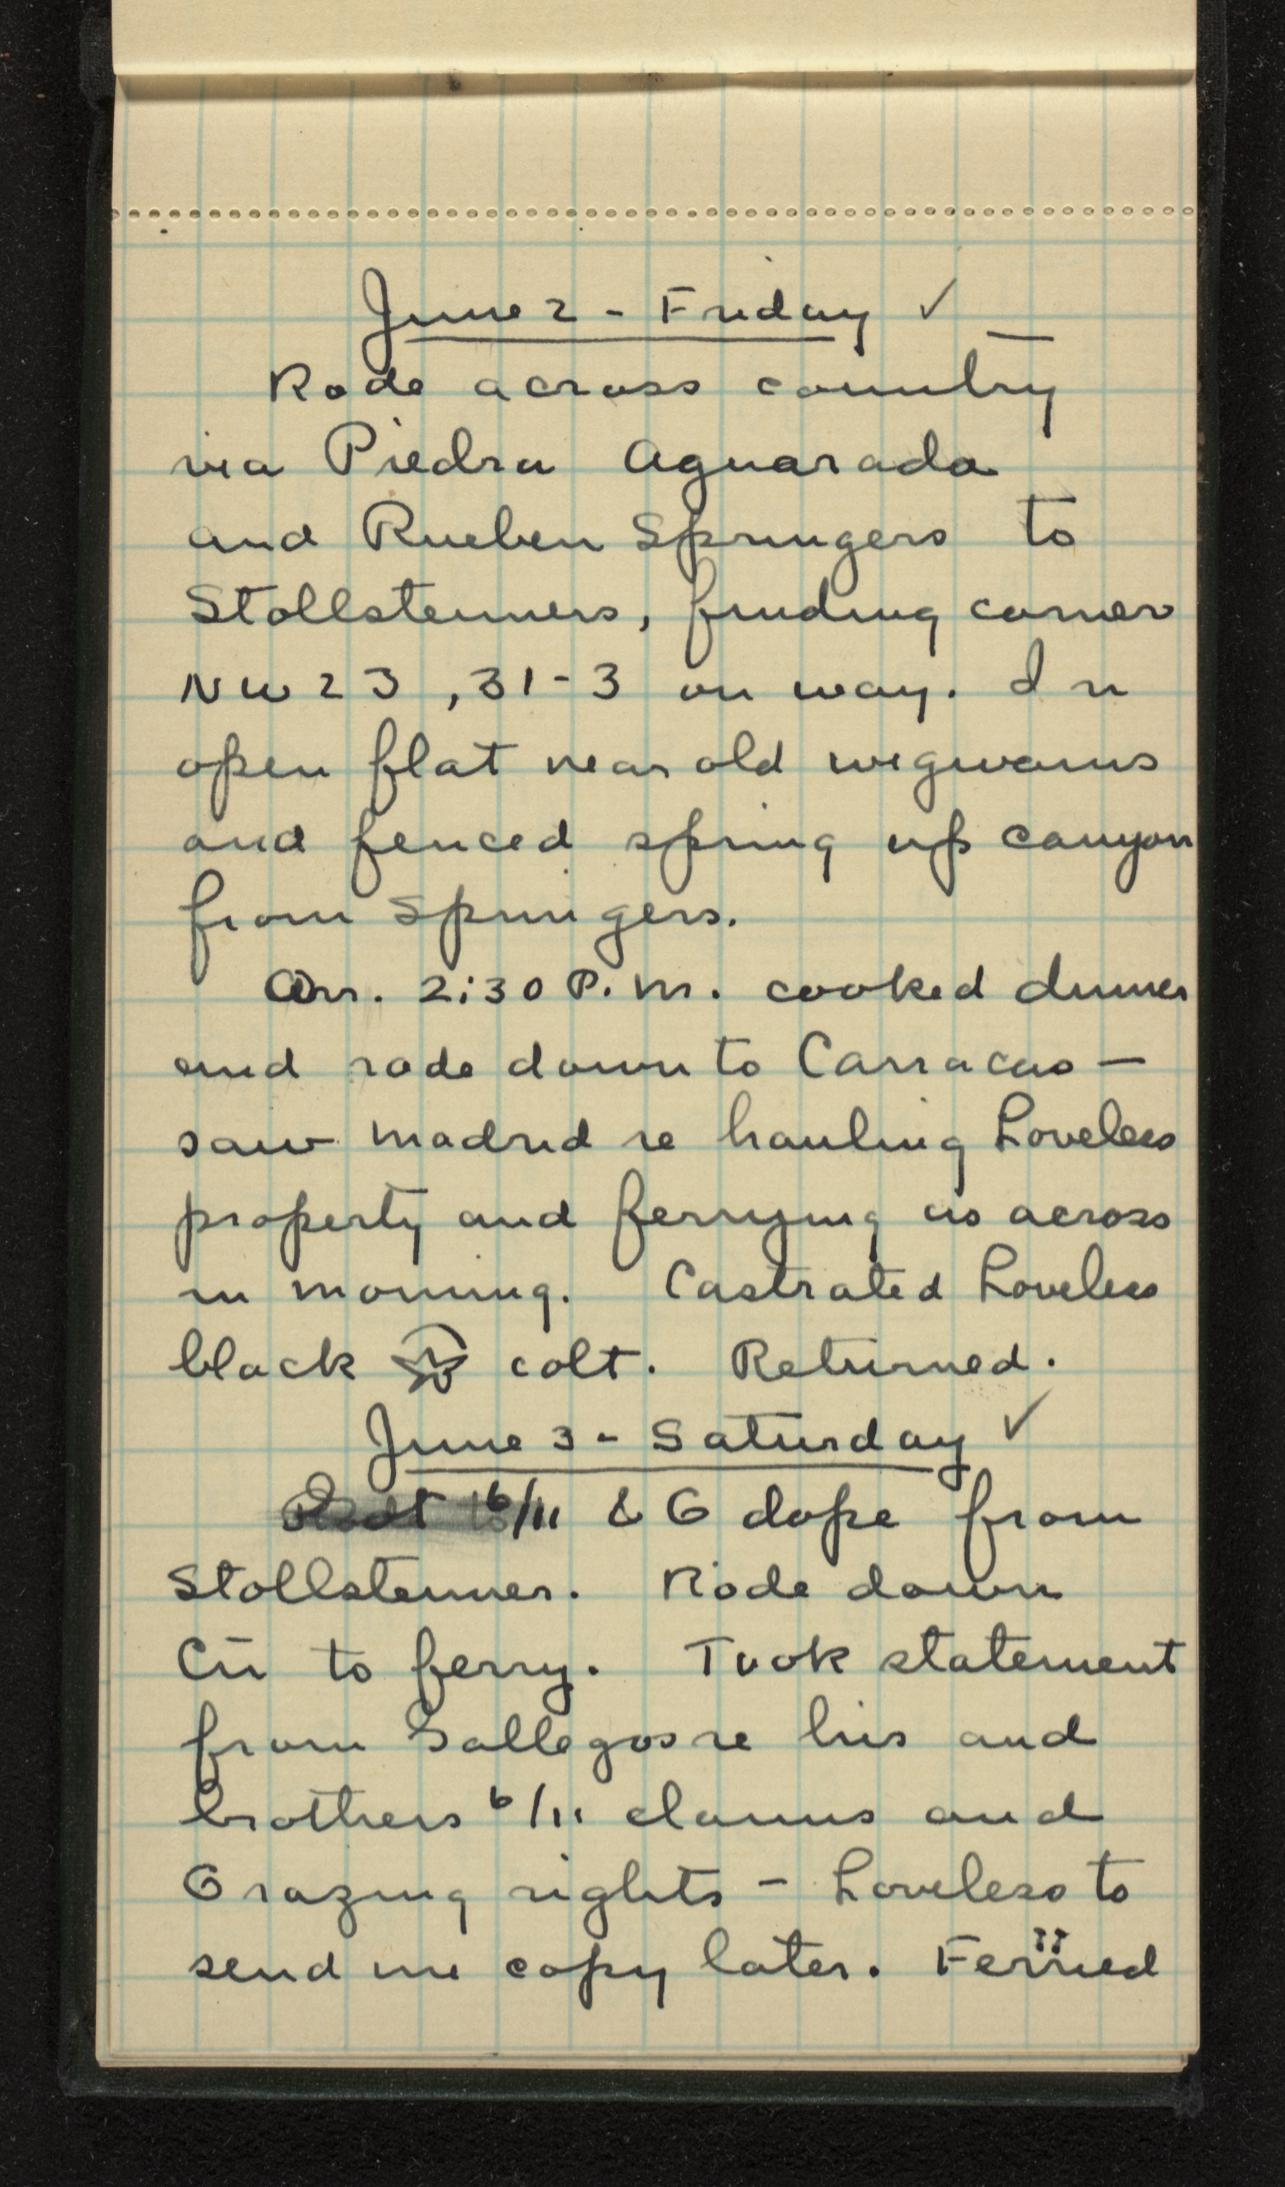 June 2 - Friday ✓
Rode across country
via Piedra Aguarada
and Rueben Springers to
Stollsteimers, finding corner
NW 23, 31-3 on way. In
open flat near old wigwams
and fenced spring up canyon
from Springers.
Arr. 2:30 P.M. cooked dinner
and rode down to Carracas —
saw Madrid re hauling Loveless
property and ferrying us across
in morning. Castrated Loveless
black colt. Returned.
June 3 - Saturday ✓
6/11 & G dope from
Stollsteimer. Rode down
to ferry. Took statement
from Gallegos re his and
brothers 6/11 claims and
Grazing rights - Loveless to
send me copy later. Ferried